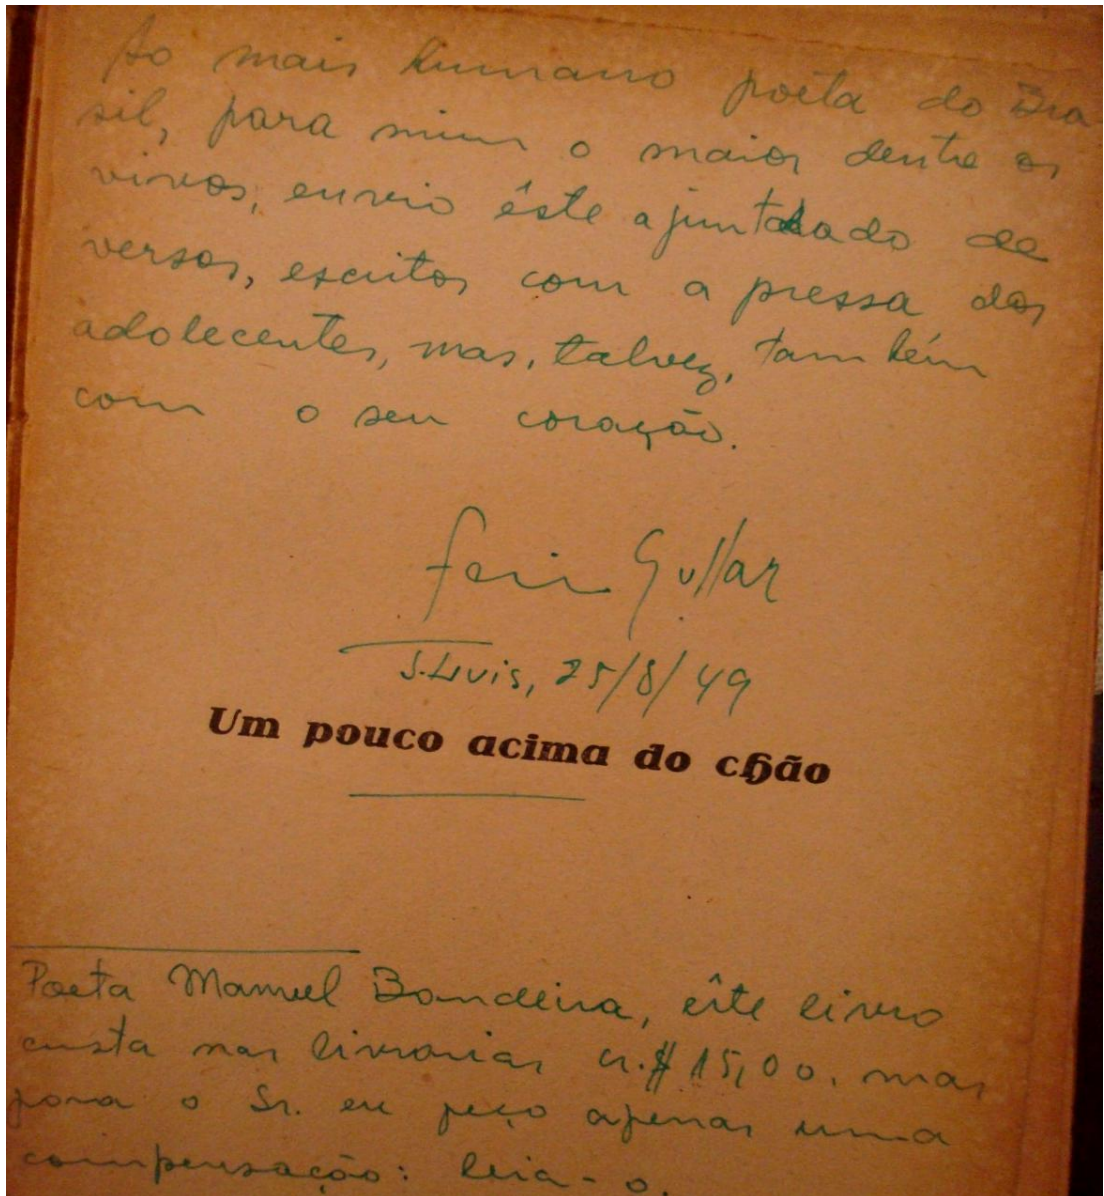 Ao mais humano poeta do Bra
sil, para mim o maior dentre os
vivos, envio êste ajuntado de
versos, escritos com a pressa dos
adolecentes, mas, talvez, também
com o seu coração.
Ferreira Gullar
S. Luis, 25/8/49
Um pouco acima do chão
Poeta Manuel Bandeira, êste livro
custa nas livrarias cr.$ 15,00. mas
para o Sr. eu peço apenas uma
compensação: leia-o.